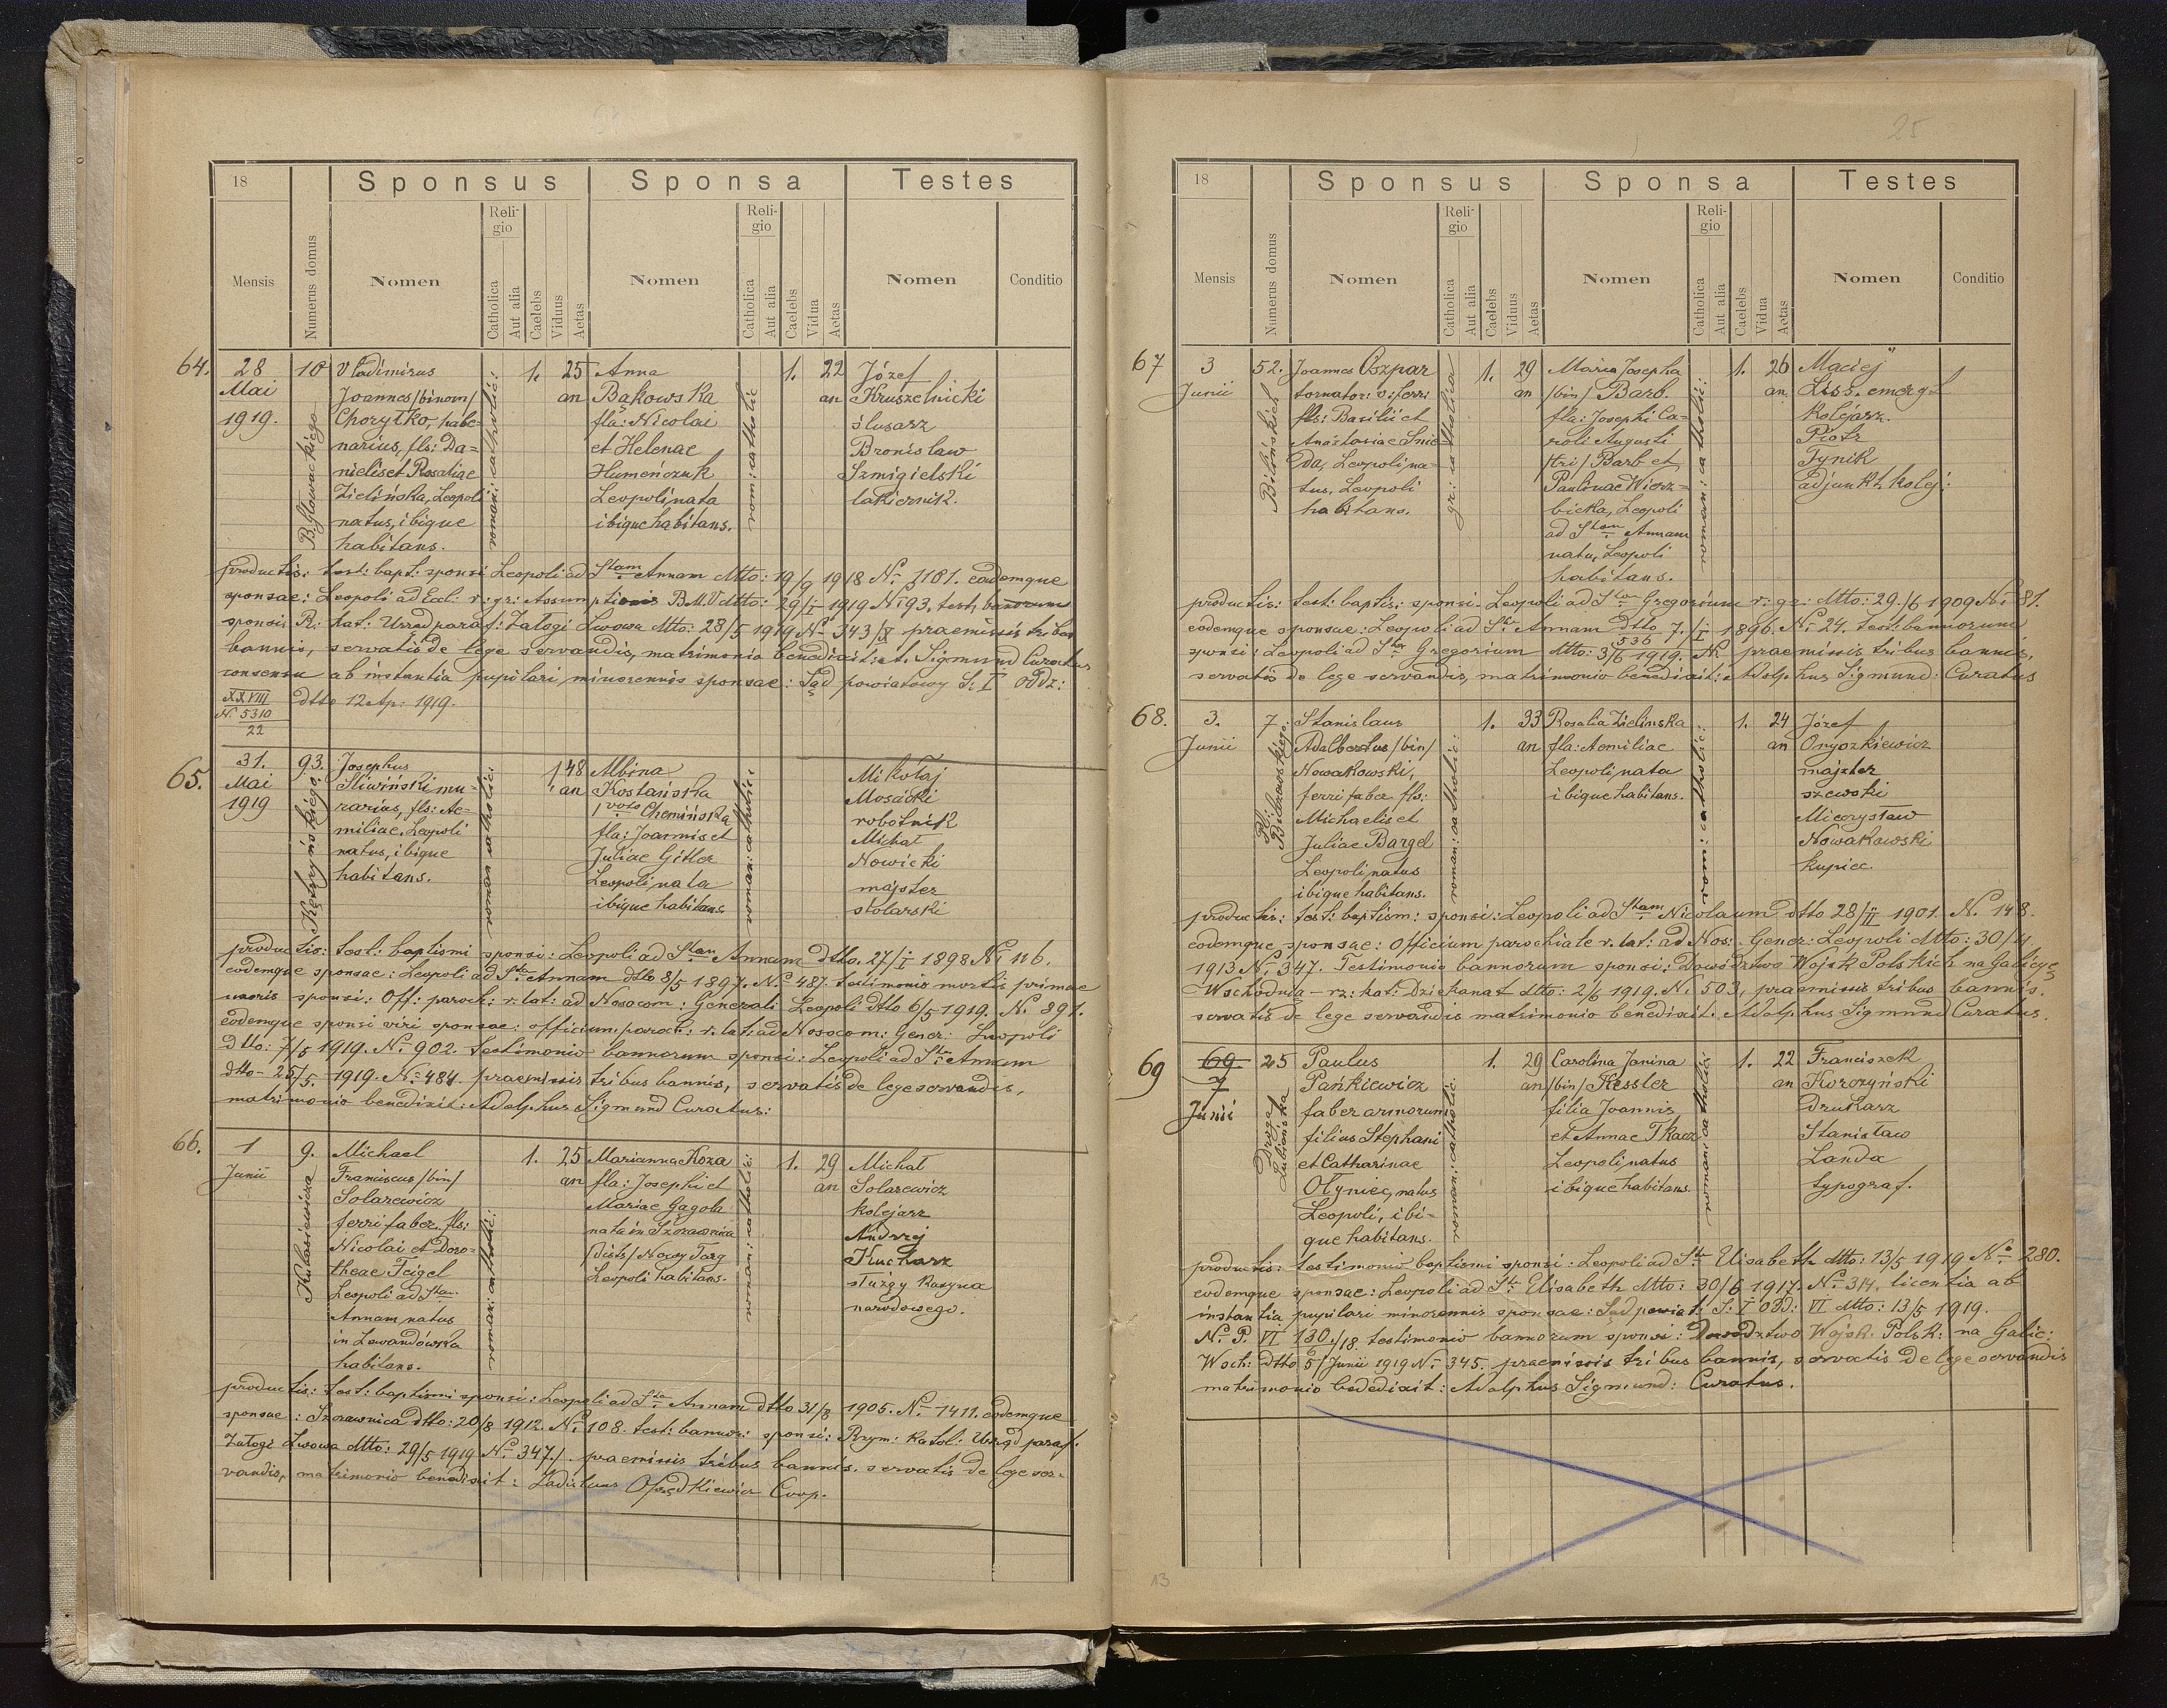 18
Sponsus
Sponsa
Testes
Mensis
Numerus domus
Nomen
Religio
Catholica
Aut alia
Caelebs
Viduus
Aetas
Nomen
Religio
Catholica
Aut alia
Caelebs
Vidua
Aetas
Nomen
Conditio
64.
28
Mai
1919.
10
Vladimirus
Joannes /binom/
Chorytko, habe-
narius, fls: Da=
nielis et Rosaliae
Zielińska, Leopoli
natus, ibique
habitans.
roman: catholic:
1.
25
an
Anna
Bąkowska
fla: Nicolai
et Helenae
Humeńczuk
Leopoli nata
ibique habitans.
rom: catholic
1.
22
an
Józef
Kruszelnicki
ślusarz
Bronisław
Szmigielski
lakiernik.
productis: test: bapt: sponsi Leopoli ad Stam Annam dtto: 19/9 1918 No 1181. eodemque
sponsae: Leopoli ad Eccl: r: gr: Assumptionis B.M.V dtto: 29/I 1919 No 93, test: bannorum
sponsi: R: Lat: Urząd paraf: Załogi Lwowa dtto: 28/5 1919 No 343/X praemissis tribus
bannis, servatis de lege servandis, matrimonio benedixit: et. Sigmund Curatus
consensu ab instantia pupilari minorennis sponsae: Sąd powiatowy S: I Oddz:
XXVIII
No 5310
22
dtto 12 Ap: 1919.
65.
31.
Mai
1919
93.
Kętrzyńskiego
Josephus
Śliwiński mu-
rarius, fls: Ae-
miliae, Leopoli
natus, ibique
habitans.
roman catholic:
1
48
an
Albina
Kostańska
1voto Chemińska
fla: Joannis et
Juliae Gitler
Leopoli nata
ibique habitans
roman: catholic:
Mikołaj
Mościcki
robotnik
Michał
Nowicki
majster
stolarski
productis: test: baptismi sponsi: Leopoli ad Stam Annam dtto. 27/I 1898 No 116.
eodemque sponsae: Leopoli ad Sta Annam dtto 8/5 1897. No 487. testimonio mortis primae
uxoris sponsi: Off: paroch: r: lat: ad Nosocom: Generali Leopoli dtto 6/5 1919. No 891.
eodemque sponsi viri sponsae: officium: paroch: r. lat: ad Nosocom: Gener: Leopoli
dtto: 7/5 1919. No 902. testimonio bannorum sponsi: Leopoli ad St: Annam
dtto- 25/5. 1919. No 484. praemissis tribus bannis, servatis de lege servandis,
matrimonio benedixit: Adolphus Sigmund Curatus:
66.
1
Junii
9.
Michael
Franciscus /bin/
Solarewicz
ferri faber. fls:
Nicolai et Doro=
theae Feigel
Leopoli ad Stam
Annam natus
in Lewandówka
habitans.
roman: catholic:
1.
25
an
Marianna Koza
fla: Josephi et
Mariae Gągola
nata in Szczawnica
/distr/ Nowy Targ
Leopoli habitans.
roman: catholic:
1.
29
an
Michał
Solarewicz
kolejarz
Andrzej
Kucharz
służący kasyna
narodowego.
productis: test: baptismi sponsi: Leopoli ad Sta Annam dtto 31/8 1905. No 1411. eodemque
sponsae: Szczawnica dtto: 20/8 1912. No 108. test: bannor: sponsi: Rzym: Katol: Urząd paraf:
Załogi Lwowa dtto: 29/5 1919 No 347/. praemissis tribus bannis. servatis de lege ser-
vandis, matrimonio benedixit: Coop.
25
18
Sponsus
Sponsa
Testes
Mensis
Numerus domus
Nomen
Religio
Catholica
Aut alia
Caelebs
Viduus
Aetas
Nomen
Religio
Catholica
Aut alia
Caelebs
Vidua
Aetas
Nomen
Conditio
67
3
Junii
52.
Bilińskich
Joannes Oszpar
tornator: v: ferri
fls: Basilii et
Anastasiae Śnie-
da, Leopoli na-
tus, Leopoli
habitans.
gr: catholica
1.
29
an
Maria Josepha
/bin/ Barb.
fla: Josephi Ca=
roli Augusti
/tri/ Barb et
Paulinae Wierz=
bicka, Leopoli
ad Stam Annam
nata, Leopoli
habitans.
roman: catholic:
1.
26
an
Maciej
Lis b. emeryt
kolejarz.
Piotr
Tynik
adjunkt kolej:
productis: test: baptis: sponsi. Leopoli ad Stum Gregorium r: gr: dtto: 29./6 1909 No 81.
eodemque sponsae: Leopoli ad St: Annam dtto 7./I 1896. No 24. test: bannorum
sponsi: Leopoli ad Stum Gregorium dtto: 3/6 1919. No 536 praemissis tribus bannis,
servatis de lege servandis, matrimonio benedixit: Adolphus Sigmund: Curatus
68.
3.
Junii
7.
Pl:
Bilczewskiego:
Stanislaus
Adalbertus /bin/
Nowakowski,
ferri faber fls:
Michaelis et
Juliae Bargel
Leopoli natus
ibique habitans.
roman: catholic:
1.
33
an
Rosalia Zielinska
fla: Aemiliae
Leopoli nata
ibique habitans.
rom: catholic:
1.
24
an
Józef
Onyszkiewicz
majster
szewski
Mieczysław
Nowakowski
kupiec.
productis: test: baptism: sponsi: Leopoli ad Stam Nicolaum dtto 28/II 1901. No 148.
eodemque sponsae: Officium parochiale r. lat: ad Nos: Gener: Leopoli dtto: 30/4
1913 No 347. Testimonio bannorum sponsi: Dowództwo Wojsk Polskich na Galicyę
Wschodnią - rz: kat: Dziekanat dtto: 2/6 1919. No 503, praemissis tribus bannis.
servatis de lege servandis matrimonio benedixit: Adolphus Sigmund Curatus.
69
69.
7
Junii
25
Droga
Lubieńska
Paulus
Pańkiewicz
faber armorum
filius Stephani
et Catharinae
Ołyniec, natus
Leopoli, ibi-
que habitans.
roman: catholic:
1.
29
an
Carolina Janina
/bin/ Kessler
filia Joannis
et Annae Tkacz
Leopoli natus
ibique habitans.
roman: catholic:
1.
22
an
Franciszek
Korczyński
Drukarz
Stanisław
Landa
typograf.
productis: testimonio baptismi sponsi: Leopoli ad St: Elisabeth dtto: 13/5 1919 No 280.
eodemque sponsae: Leopoli ad St: Elisabeth dtto: 30/6 1917. No 314, licentia ab
instantia pupilari minorennis sponsae: Sąd powiat: S: I Odd: VI dtto: 13/5 1919.
No P. VI 130./18. testimonio bannorum sponsi: Dowództwo Wojsk. Polsk: na Galic:
Wsch: dtto 5/Junii 1919 No 345. praemissis tribus bannis, servatis de lege servandis
matrimonio bededixit: Adolphus Sigmund: Curatus.
13